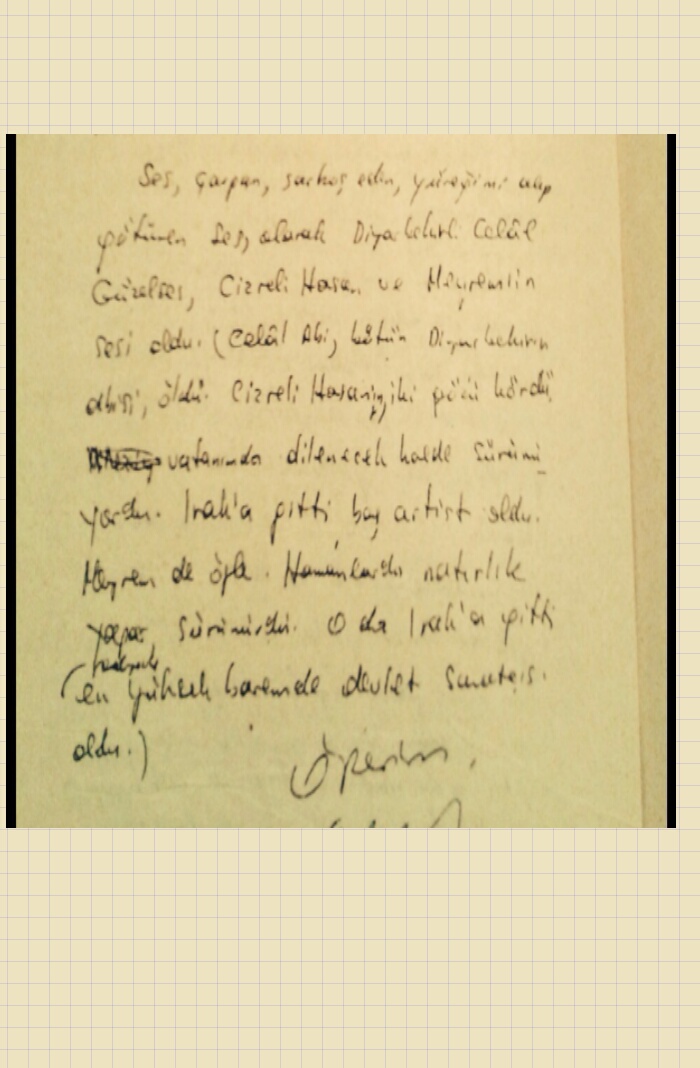 Ses, çarpan, sarhoş eden, yüreğimi alıp
götüren ses, olarak Diyarbekirli Celâl
Güzelses, Cizreli Hasan ve Meyremin
sesi oldu. (Celâl Abi, bütün Diyarbekirin
abisi, öldü. Cizreli Hasanın, iki gözü kördü,
vatanında dilenecek halde sürünü
yordu. Irak'a gitti baş artist oldu.
Meyrem de öyle. Hamamlarda natırlık
yapar, sürünürdü. O da Irak'a gitti
en yüksek baremde devlet sanatçısı
oldu.)
Öperim,